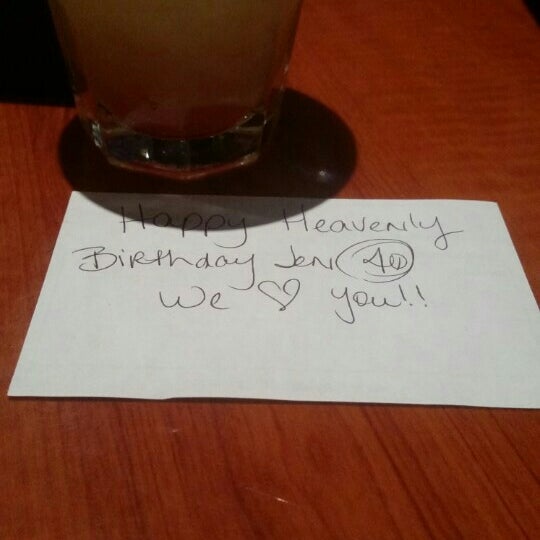 Happy Heavenly
Birthday Jen 40
We ♡ you!!